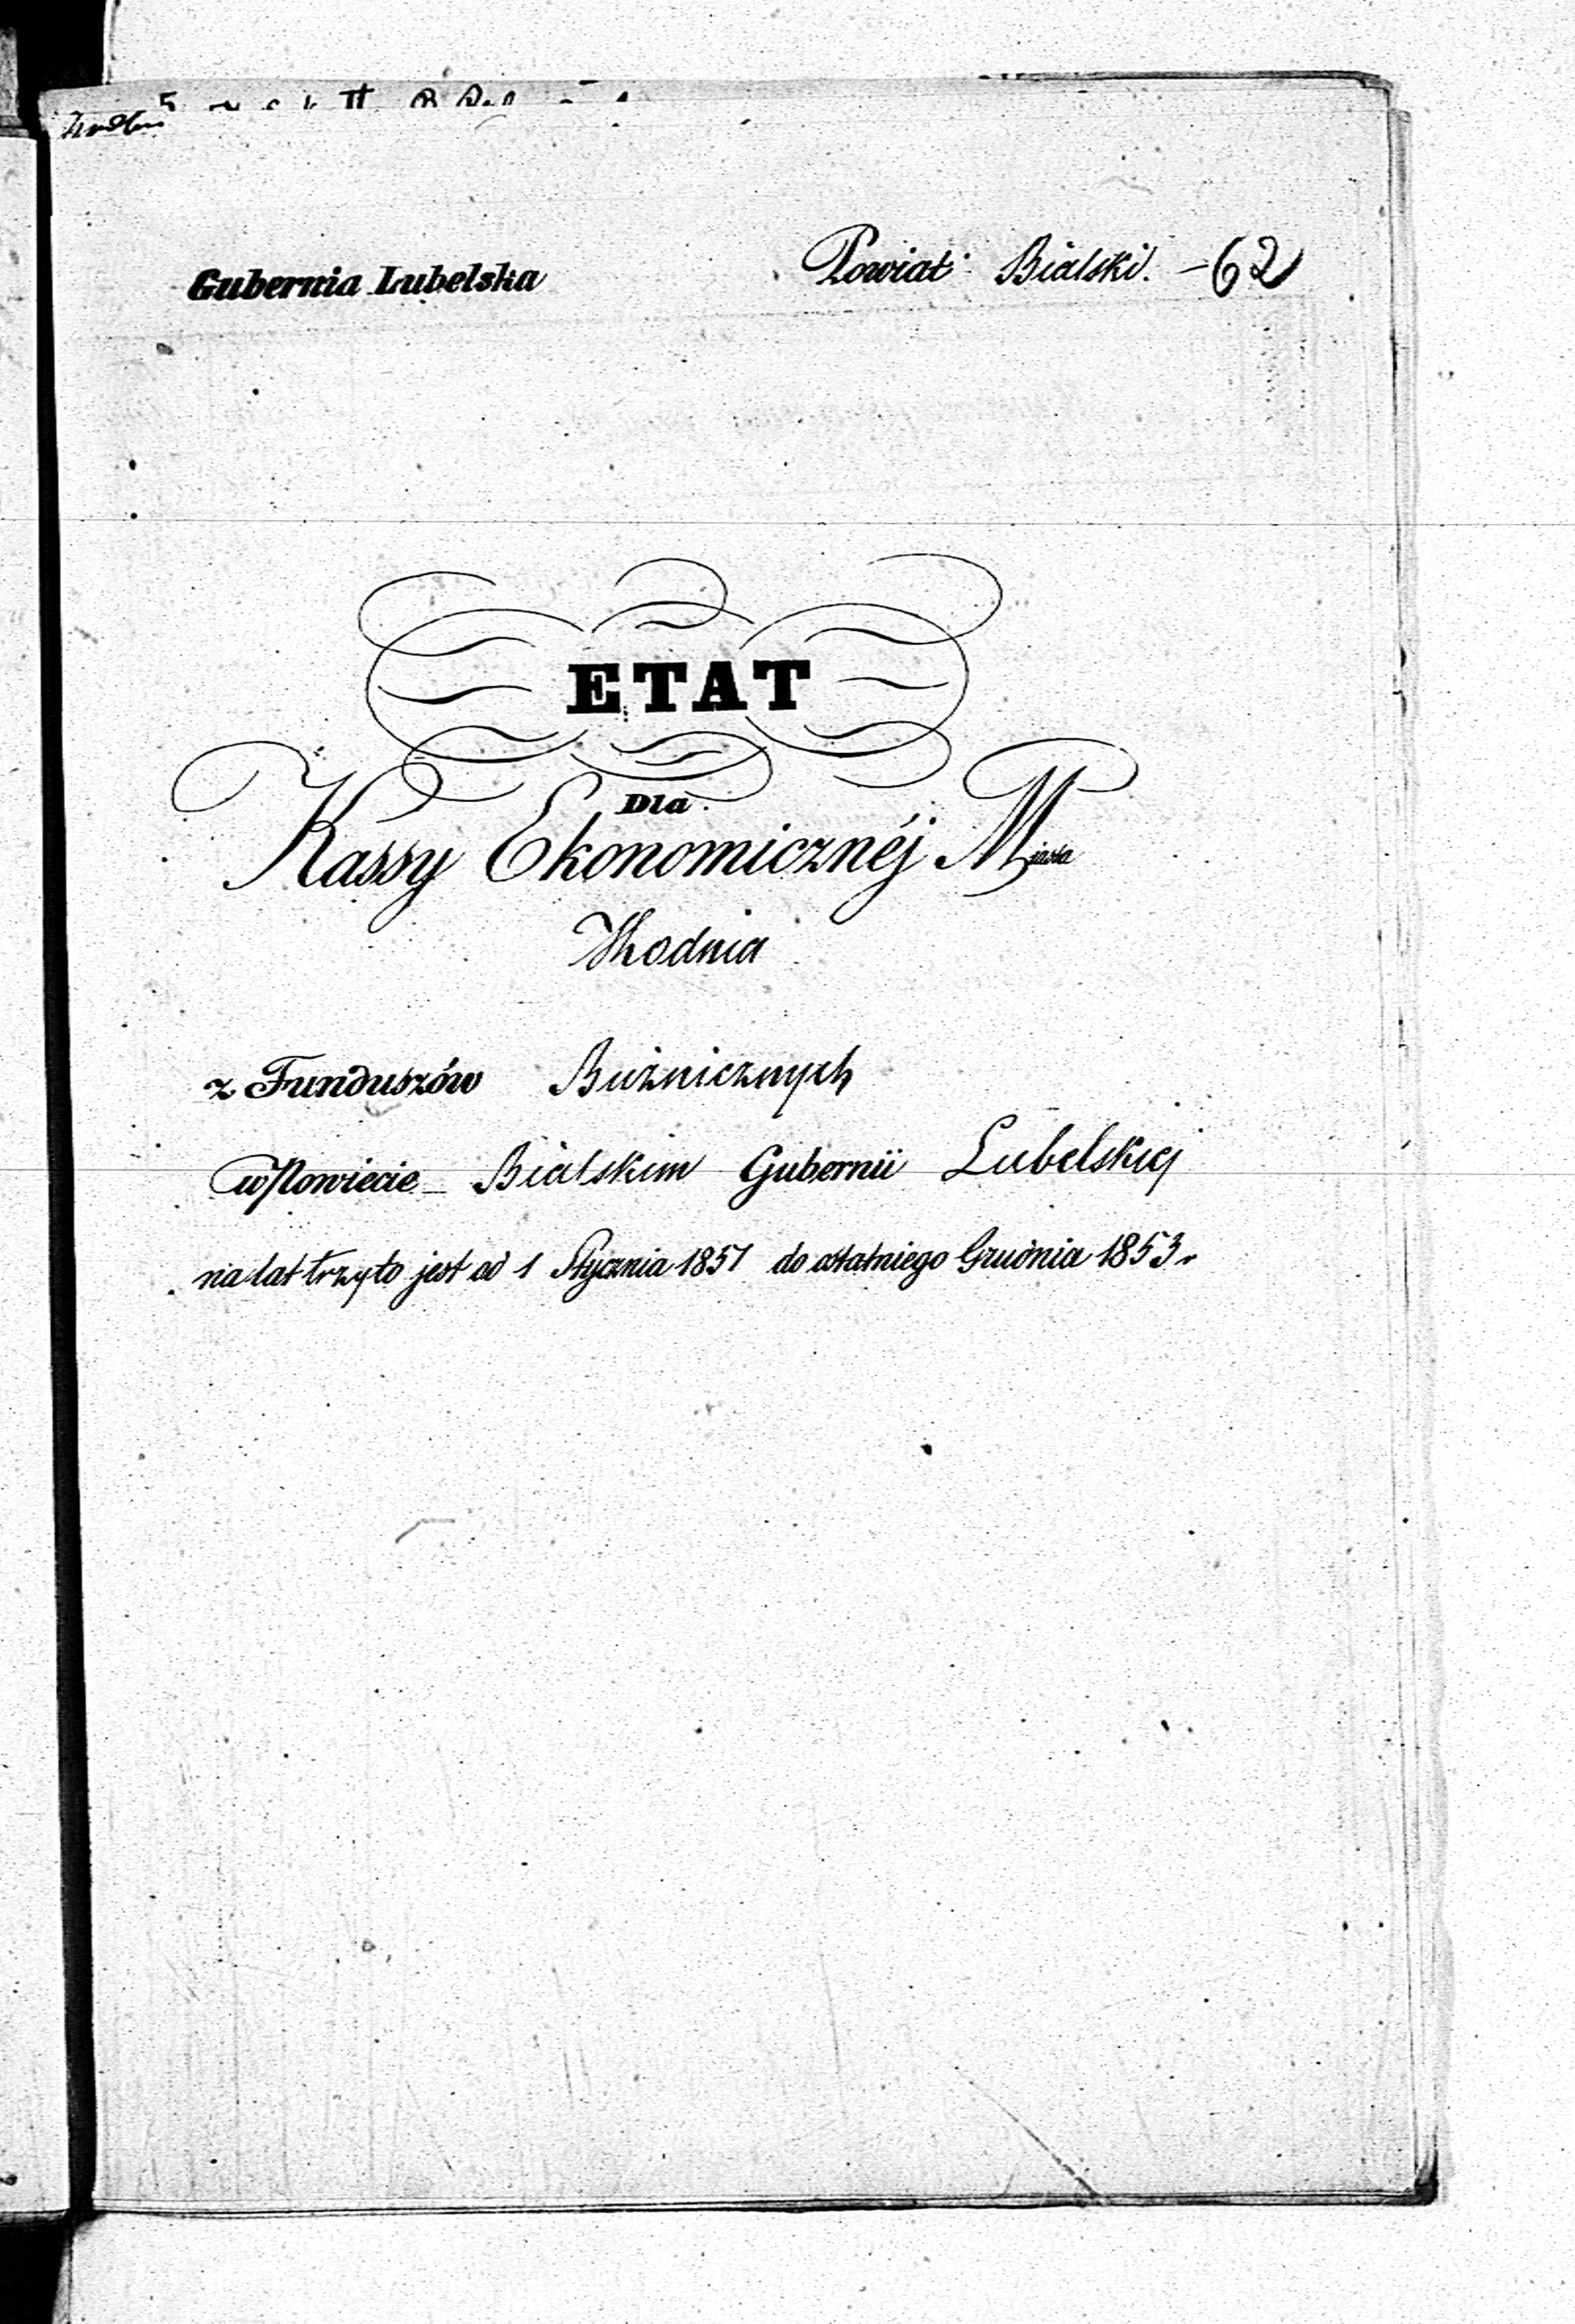 Gubernia Lubelska Powiat Bialski. - 62
ETAT
Dla
Kassy Ekonomicznéj Miasta
Kodnia
z Funduszów Bużnicznych
w Powiecie Bialskim Gubernii Lubelskiej
na lat trzy to jest od 1 Stycznia 1851 do ostatniego Grudnia 1853 r